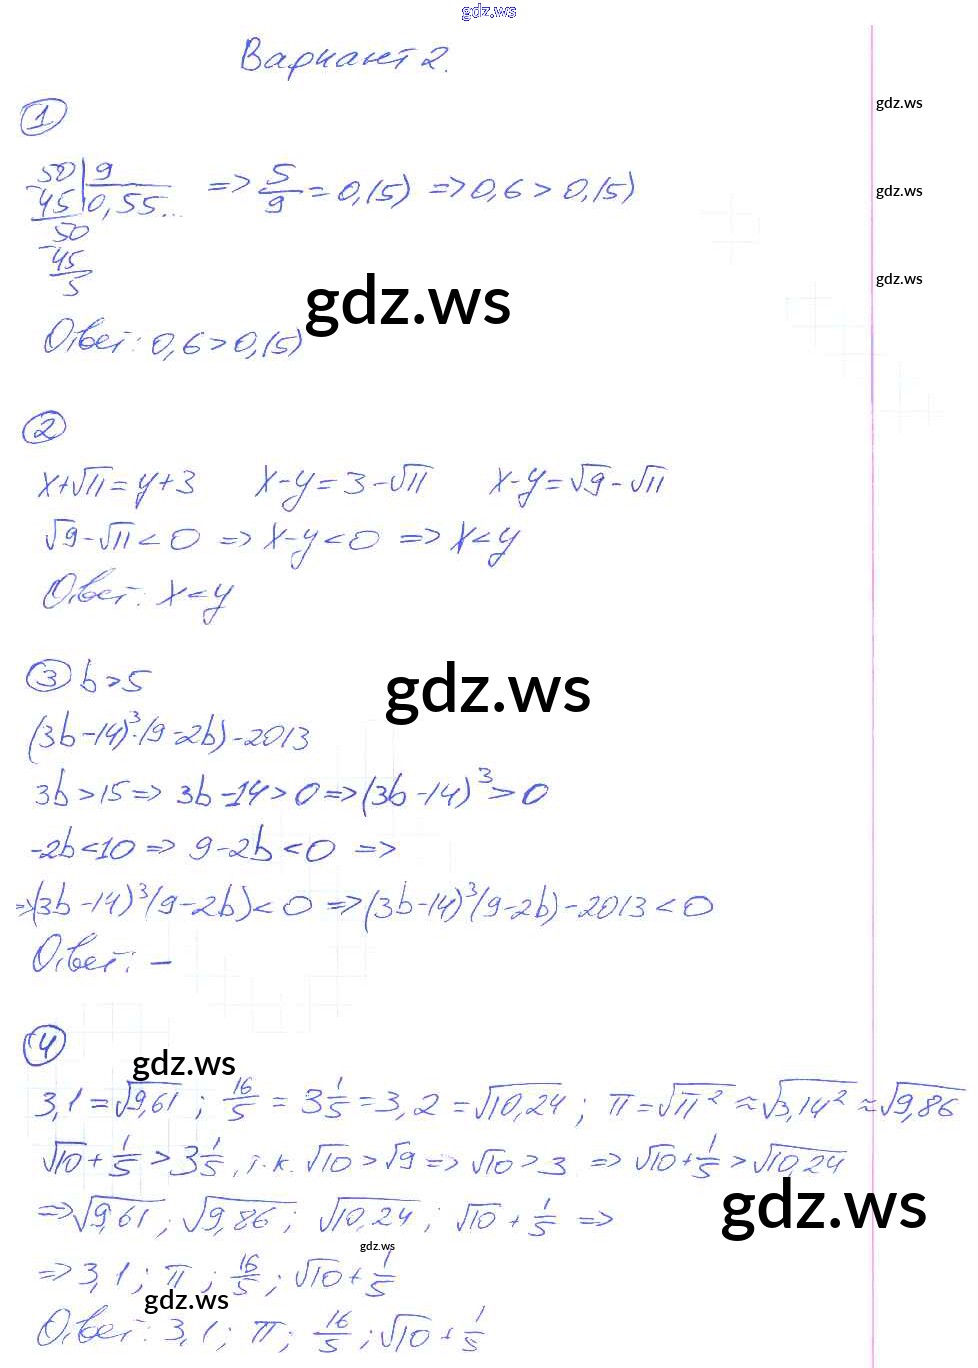 gdz.ws
Вариант 2.
gdz.ws
1
50 | 9
-45 | 0,55... => 5/9 = 0,(5) => 0,6 > 0,(5)
gdz.ws
50
-45
5
gdz.ws
gdz.ws
Ответ: 0,6 > 0,(5)
2
x+√11 = y+3 x-y = 3-√11 x-y = √9-√11
√9-√11 < 0 => x-y < 0 => x < y
Ответ: x < y
3 b > 5
gdz.ws
(3b-14)³·(9-2b)-2013
3b > 15 => 3b-14 > 0 => (3b-14)³ > 0
-2b < 10 => 9-2b < 0 =>
=> (3b-14)³(9-2b) < 0 => (3b-14)³(9-2b)-2013 < 0
Ответ: –
4
gdz.ws
3,1 = √9,61 ; 16/5 = 3 1/5 = 3,2 = √10,24 ; π = √π² ≈ √3,14² ≈ √9,86
√10 + 1/5 > 3 1/5, т.к. √10 > √9 => √10 > 3 => √10 + 1/5 > √10,24
gdz.ws
=> √9,61 ; √9,86 ; √10,24 ; √10 + 1/5 =>
gdz.ws
=> 3,1 ; π ; 16/5 ; √10 + 1/5
gdz.ws
Ответ: 3,1 ; π ; 16/5 ; √10 + 1/5